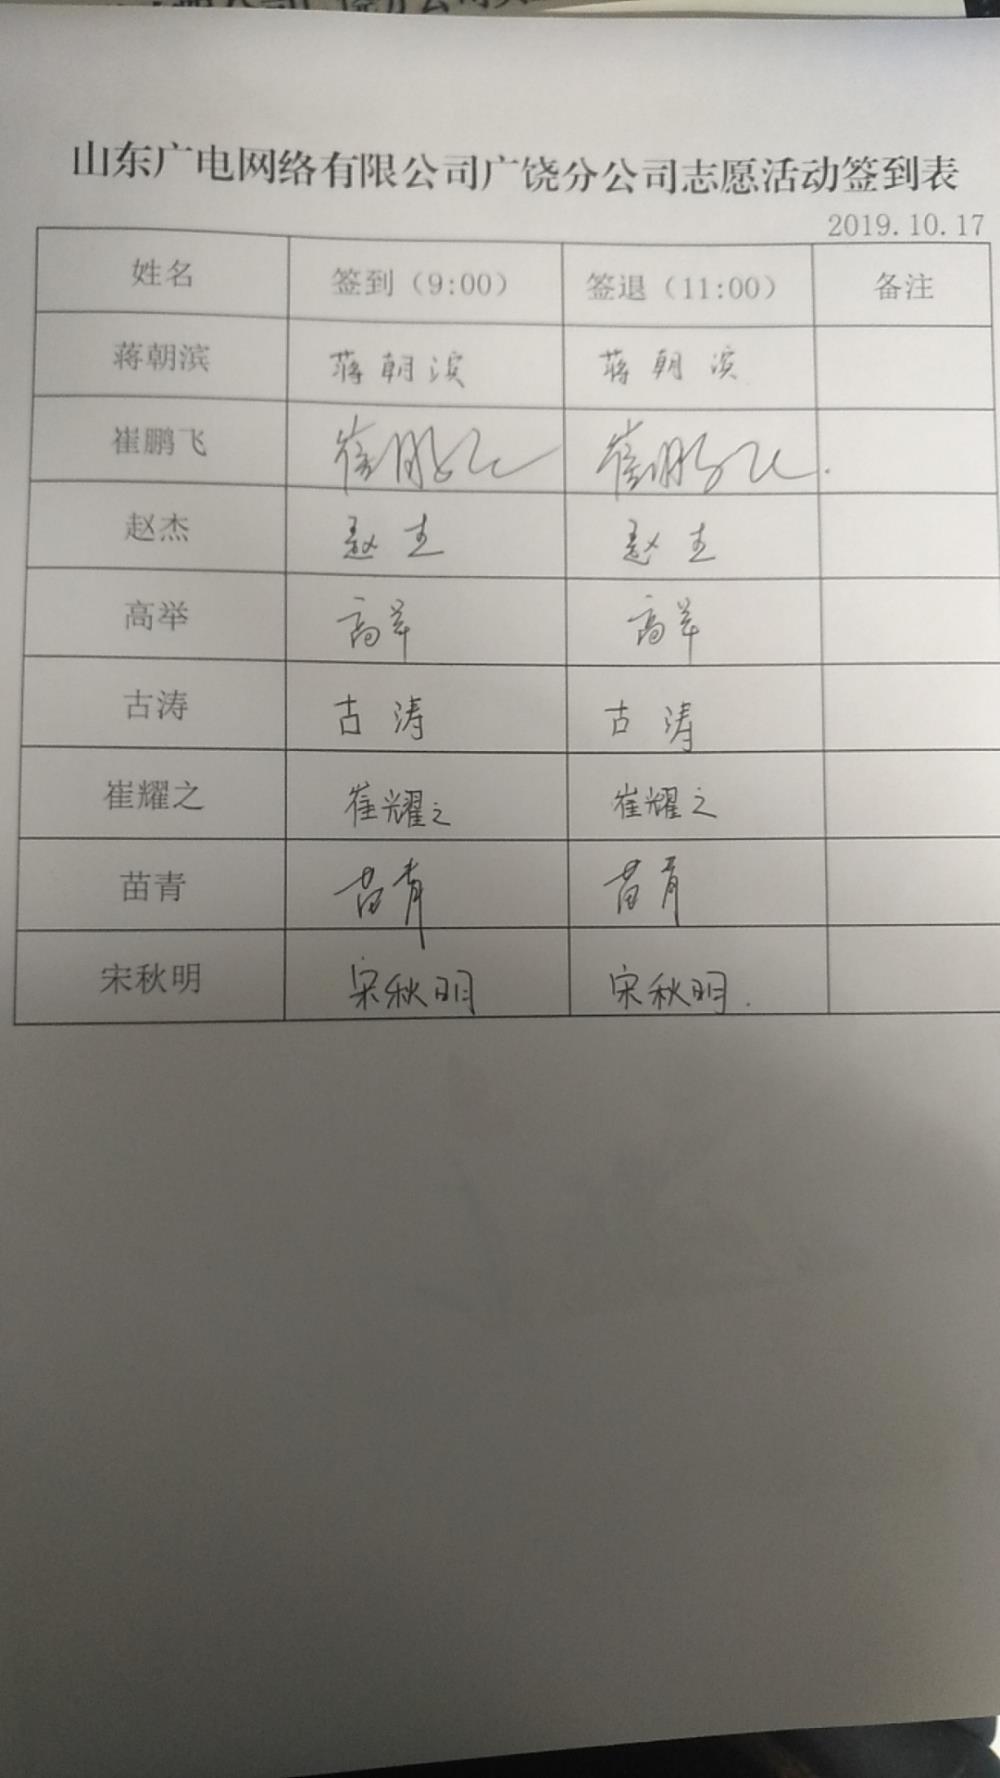 山东广电网络有限公司广饶分公司志愿活动签到表
2019.10.17
姓名 签到（9:00） 签退（11:00） 备注
蒋朝滨 蒋朝滨 蒋朝滨
崔鹏飞 崔鹏飞 崔鹏飞.
赵杰 赵杰 赵杰
高举 高举 高举
古涛 古涛 古涛
崔耀之 崔耀之 崔耀之
苗青 苗青 苗青
宋秋明 宋秋明 宋秋明.